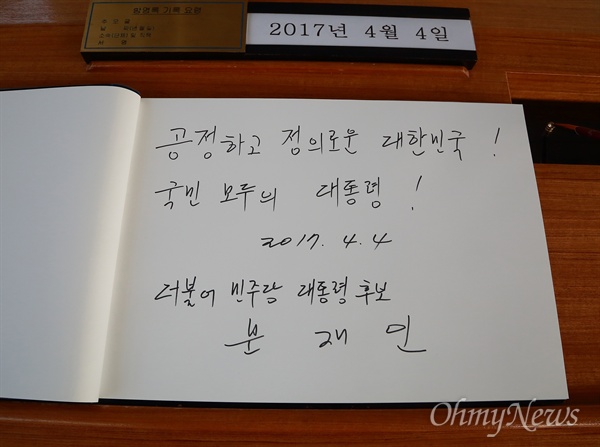 방명록 기록 요령
2017년 4월 4일
공정하고 정의로운 대한민국 !
국민 모두의 대통령 !
2017. 4. 4
더불어 민주당 대통령 후보
문 재 인
OhmyNews